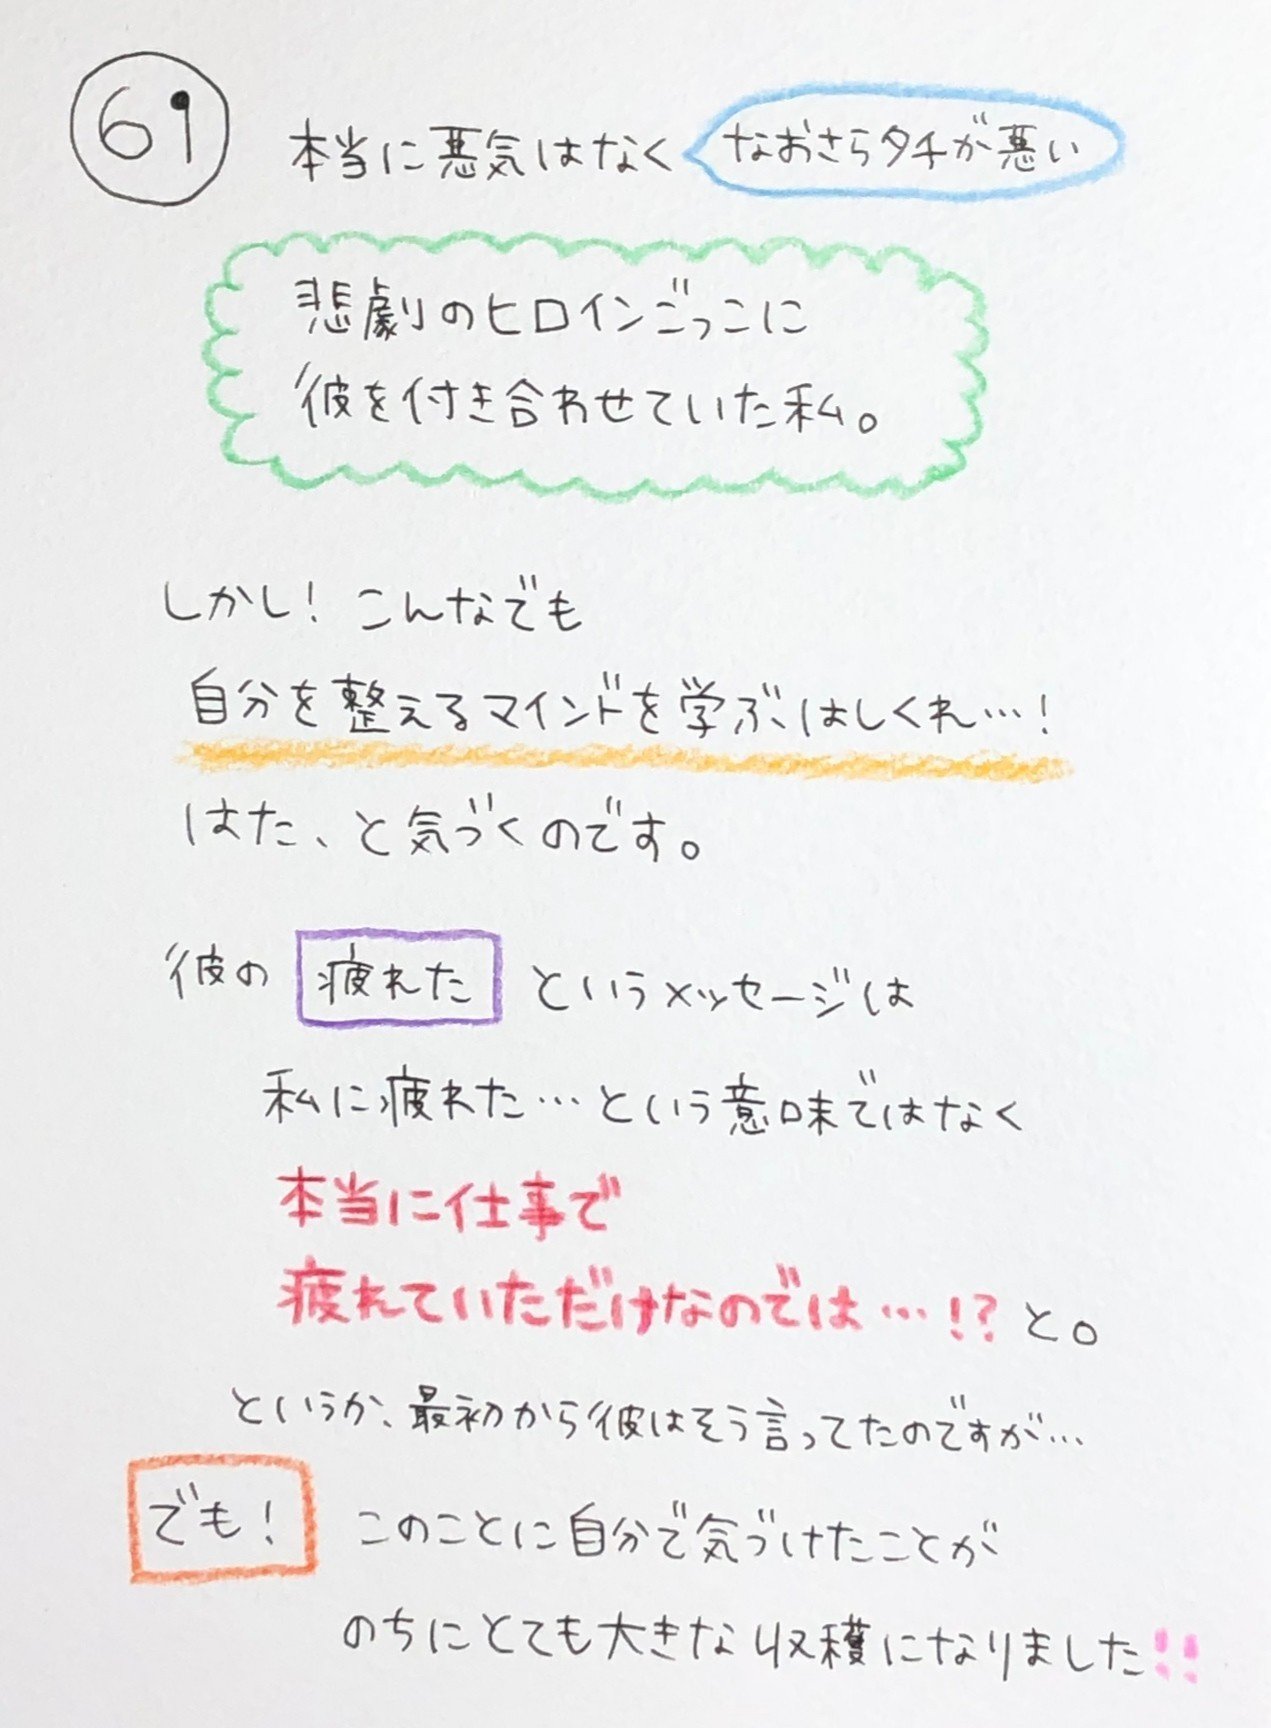 61
本当に悪気はなく
なおさらタチが悪い
悲劇のヒロインごっこに
彼を付き合わせていた私。
しかし！こんなでも
自分を整えるマインドを学ぶはしくれ…！
はた、と気づくのです。
彼の 疲れた というメッセージは
私に疲れた…という意味ではなく
本当に仕事で
疲れていただけなのでは…!? と。
というか、最初から彼はそう言ってたのですが…
でも！ このことに自分で気づけたことが
のちにとても大きな収穫になりました!!